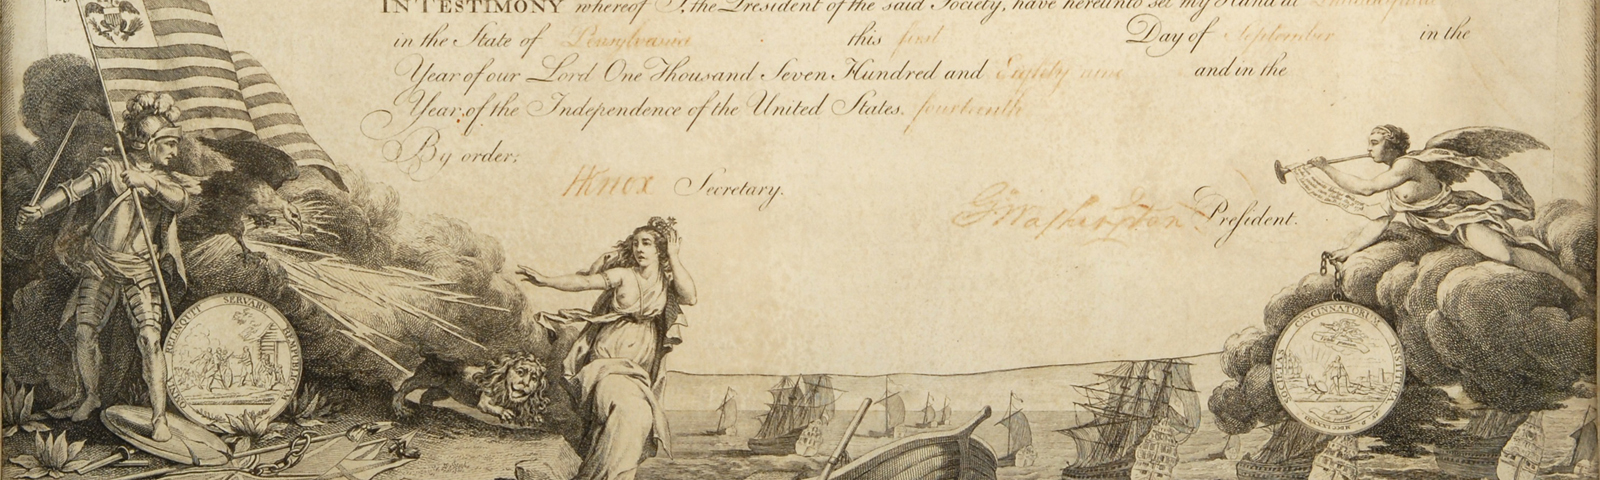 IN TESTIMONY whereof I, the President of the said Society, have hereunto set my Hand at Philadelphia
in the State of Pensylvania this first Day of September in the
Year of our Lord One Thousand Seven Hundred and Eighty nine and in the
Year of the Independence of the United States. fourteenth
By order;
HKnox Secretary.
G:Washington President.
OMNIA RELINQUIT SERVARE REMPUBLICAM
SOCIETAS CINCINNATORUM INSTITUTA